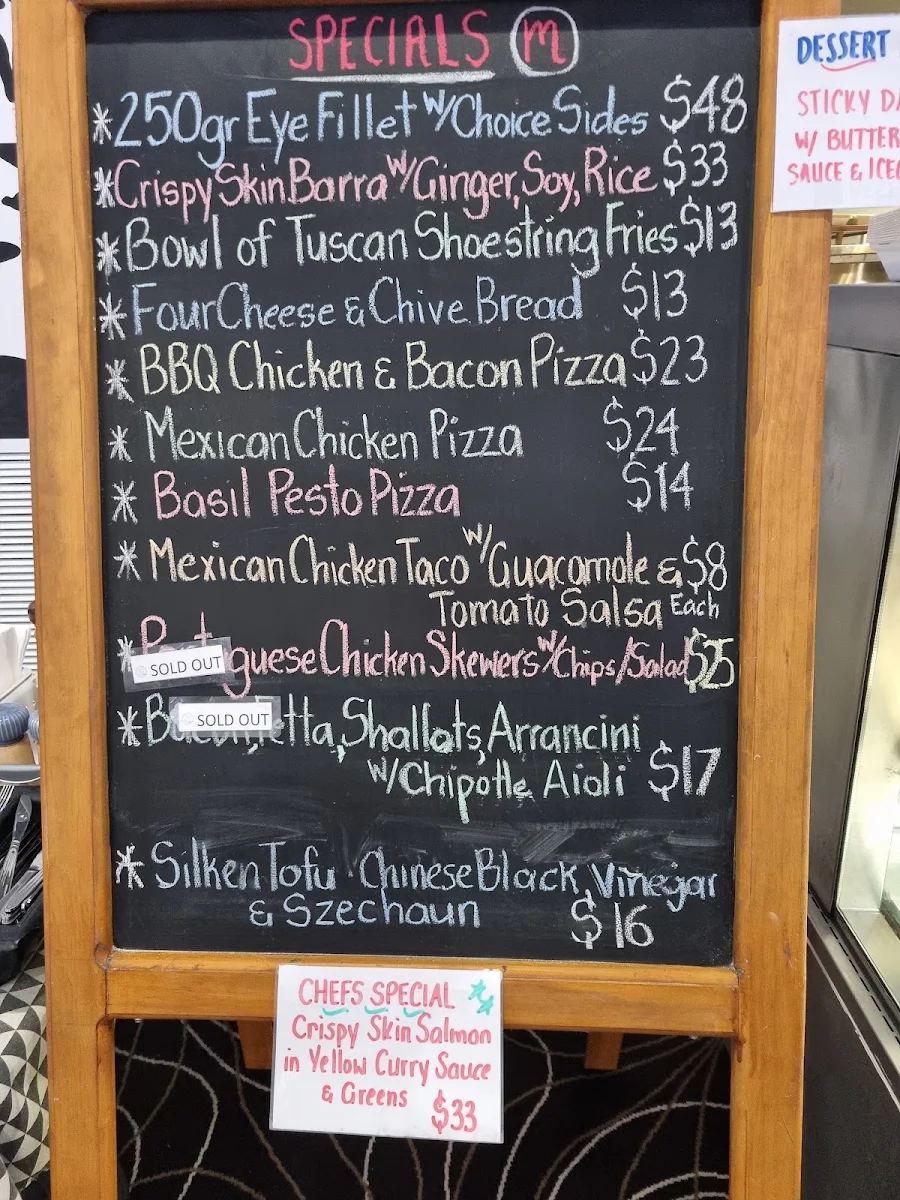 SPECIALS m
* 250gr Eye Fillet w/Choice Sides $48
* Crispy Skin Barra w/Ginger, Soy, Rice $33
* Bowl of Tuscan Shoestring Fries $13
* Four Cheese & Chive Bread $13
* BBQ Chicken & Bacon Pizza $23
* Mexican Chicken Pizza $24
* Basil Pesto Pizza $14
* Mexican Chicken Taco w/Guacamole & $8
Tomato Salsa Each
* guese Chicken Skewers w/Chips/Salad $25
SOLD OUT
SOLD OUT
* etta, Shallots, Arrancini
w/Chipotle Aioli $17
* Silken Tofu Chinese Black Vinegar
& Szechaun $16
CHEFS SPECIAL
Crispy Skin Salmon
in Yellow Curry Sauce
& Greens $33
DESSERT
STICKY DA
W/ BUTTER
SAUCE & ICE